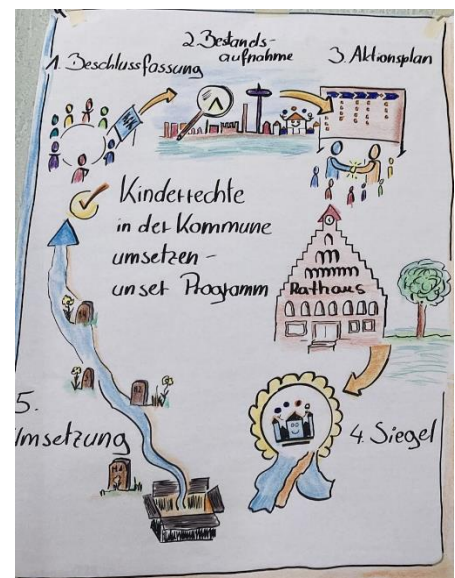 1. Beschlussfassung
2. Bestands-
aufnahme
3. Aktionsplan
Kinderrechte
in der Kommune
umsetzen -
unser Programm
Rathaus
4. Siegel
5.
Umsetzung